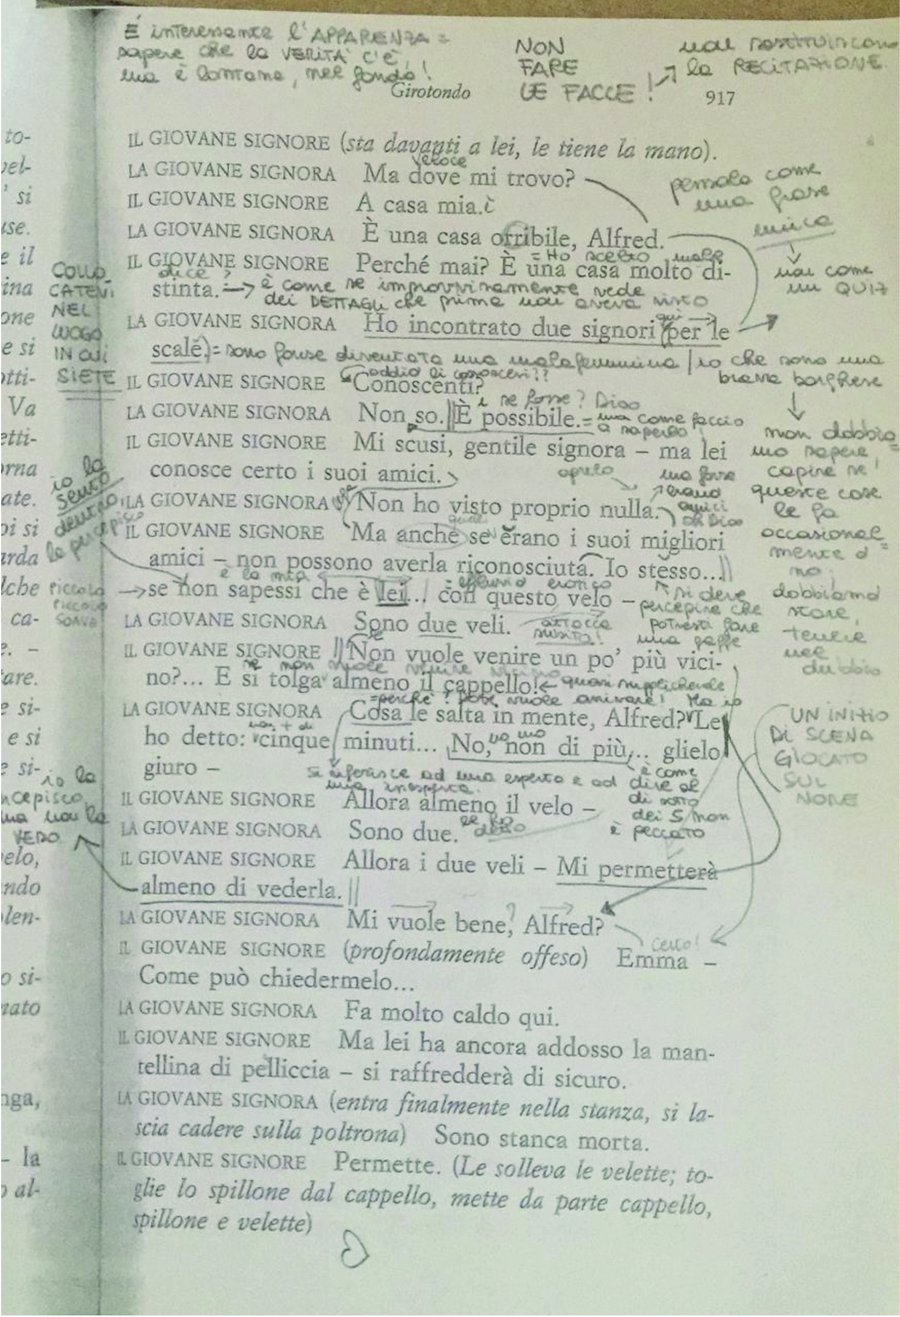 È interessante l'APPARENZA =
sapere che la VERITÀ c'è,
ma è lontana, nel fondo!
NON
FARE
LE FACCE!
mai sostituiscono
la RECITAZIONE
Girotondo
917
IL GIOVANE SIGNORE (sta davanti a lei, le tiene la mano).
veloce
LA GIOVANE SIGNORA Ma dove mi trovo?
IL GIOVANE SIGNORE A casa mia.
LA GIOVANE SIGNORA È una casa orribile, Alfred.
pensala come
una frase
unica
mai come
un QUIZ
= Ho scelto male
IL GIOVANE SIGNORE Perché mai? È una casa molto di-
dice?
stinta.
è come se improvvisamente vede
dei DETTAGLI che prima non aveva visto
COLLO
CATEVI
NEL
LUOGO
IN CUI
SIETE
qui
LA GIOVANE SIGNORA Ho incontrato due signori per le
scale = sono forse diventata una malafemmina / io che sono una
brava borghese
oddio li conoscevi??
IL GIOVANE SIGNORE Conoscenti?
e se fosse? Dio
LA GIOVANE SIGNORA Non so. È possibile. = ma come faccio
a saperlo!
IL GIOVANE SIGNORE Mi scusi, gentile signora – ma lei
conosce certo i suoi amici.
non dobbia=
mo sapere,
capire se
queste cose
le fa
occasional
mente o
no:
dobbiamo
stare,
tenere
nel
dubbio
ma forse
erano
amici
oh Dio
LA GIOVANE SIGNORA Non ho visto proprio nulla.
io la
sento
dentro,
la percepisco
IL GIOVANE SIGNORE Ma anche se erano i suoi migliori
amici – non possono averla riconosciuta. Io stesso...
è la mia
= effluvio erotico
piccola
piccola
se non sapessi che è lei... con questo velo –
si deve
percepire che
potresti fare
una gaffe
LA GIOVANE SIGNORA Sono due veli.
IL GIOVANE SIGNORE Non vuole venire un po' più vici-
se non vuole venire vicino
no?... E si tolga almeno il cappello!
quasi supplichevole
= perché? Dove vuole arrivare! Ma io
LA GIOVANE SIGNORA Cosa le salta in mente, Alfred? Le
non + di
no no
ho detto: cinque minuti... No, non di più... glielo
giuro –
si riferisce ad una esperta e ad
una inesperta.
è come
dire al
di sotto
dei 5 non
è peccato
UN INIZIO
DI SCENA
GIOCATO
SUL
NORE
IL GIOVANE SIGNORE Allora almeno il velo –
io la
percepisco
ma non la
VEDO
LA GIOVANE SIGNORA Sono due.
IL GIOVANE SIGNORE Allora i due veli – Mi permetterà
almeno di vederla.
LA GIOVANE SIGNORA Mi vuole bene, Alfred?
certo!
IL GIOVANE SIGNORE (profondamente offeso) Emma –
Come può chiedermelo...
LA GIOVANE SIGNORA Fa molto caldo qui.
IL GIOVANE SIGNORE Ma lei ha ancora addosso la man-
tellina di pelliccia – si raffredderà di sicuro.
LA GIOVANE SIGNORA (entra finalmente nella stanza, si la-
scia cadere sulla poltrona) Sono stanca morta.
IL GIOVANE SIGNORE Permette. (Le solleva le velette; to-
glie lo spillone dal cappello, mette da parte cappello,
spillone e velette)